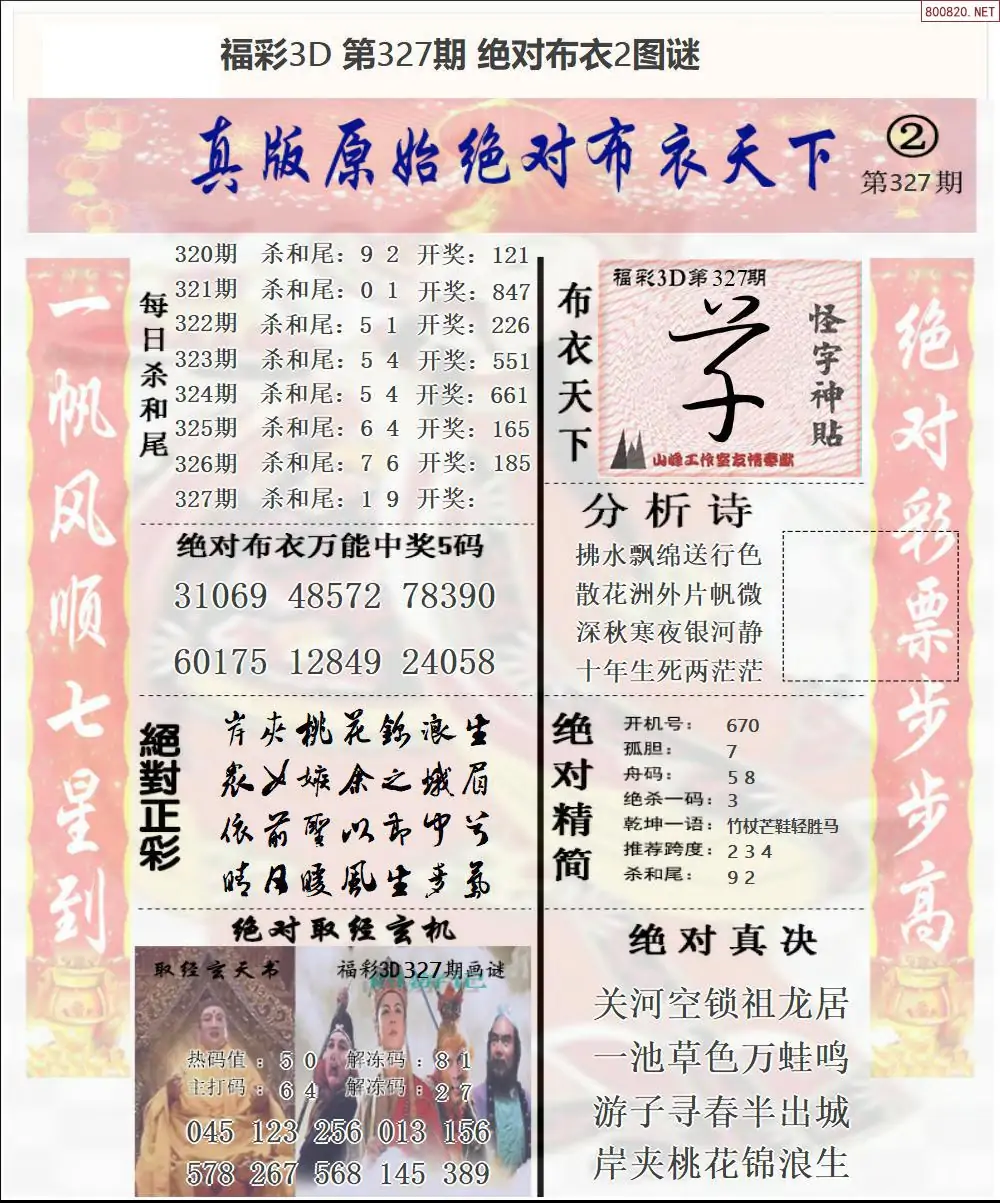 800820.NET
福彩3D 第327期 绝对布衣2图谜
真版原始绝对布衣天下
②
第327期
一帆风顺七星到
每日杀和尾
320期 杀和尾：9 2 开奖：121
321期 杀和尾：0 1 开奖：847
322期 杀和尾：5 1 开奖：226
323期 杀和尾：5 4 开奖：551
324期 杀和尾：5 4 开奖：661
325期 杀和尾：6 4 开奖：165
326期 杀和尾：7 6 开奖：185
327期 杀和尾：1 9 开奖：
绝对布衣万能中奖5码
31069 48572 78390
60175 12849 24058
絕對正彩
岸夹桃花锦浪生
众女嫉余之蛾眉
依前聖以节中兮
晴日暖風生
绝对取经玄机
取经玄天书
福彩3D327期画谜
热码值：5 0 解冻码：8 1
主打码：6 4 解冻码：2 7
045 123 256 013 156
578 267 568 145 389
布衣天下
福彩3D第327期
怪字神貼
山峰工作室友情奉献
分析诗
拂水飘绵送行色
散花洲外片帆微
深秋寒夜银河静
十年生死两茫茫
绝对精简
开机号：670
孤胆：7
舟码：5 8
绝杀一码：3
乾坤一语：竹杖芒鞋轻胜马
推荐跨度：2 3 4
杀和尾：9 2
绝对真决
关河空锁祖龙居
一池草色万蛙鸣
游子寻春半出城
岸夹桃花锦浪生
绝对彩票步步高